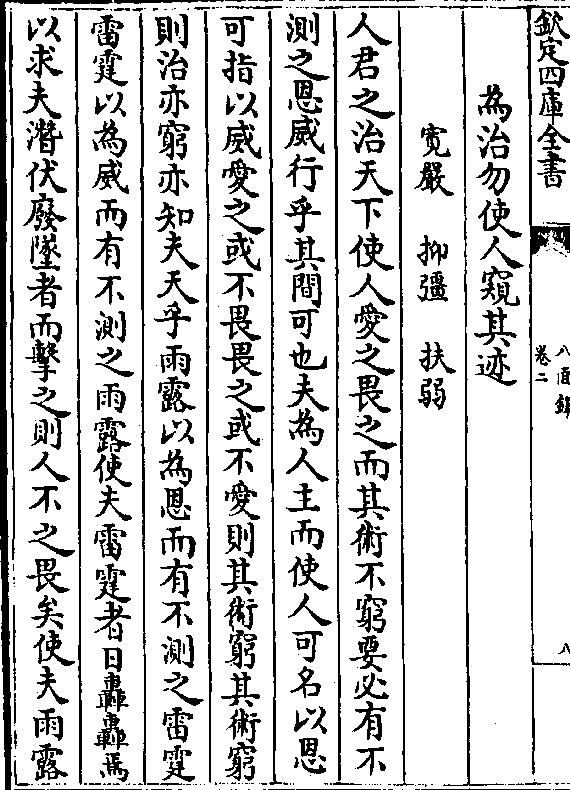 欽定四庫全書
八面鋒
卷二
八
為治勿使人窺其迹
寛嚴 抑彊 扶弱
人君之治天下使人愛之畏之而其術不窮要必有不
測之恩威行乎其間可也夫為人主而使人可名以恩
可指以威愛之或不畏畏之或不愛則其術窮其術窮
則治亦窮亦知夫天乎雨露以為恩而有不測之雷霆
雷霆以為威而有不測之雨露使夫雷霆者日轟轟焉
以求夫潛伏廢墜者而擊之則人不之畏矣使夫雨露